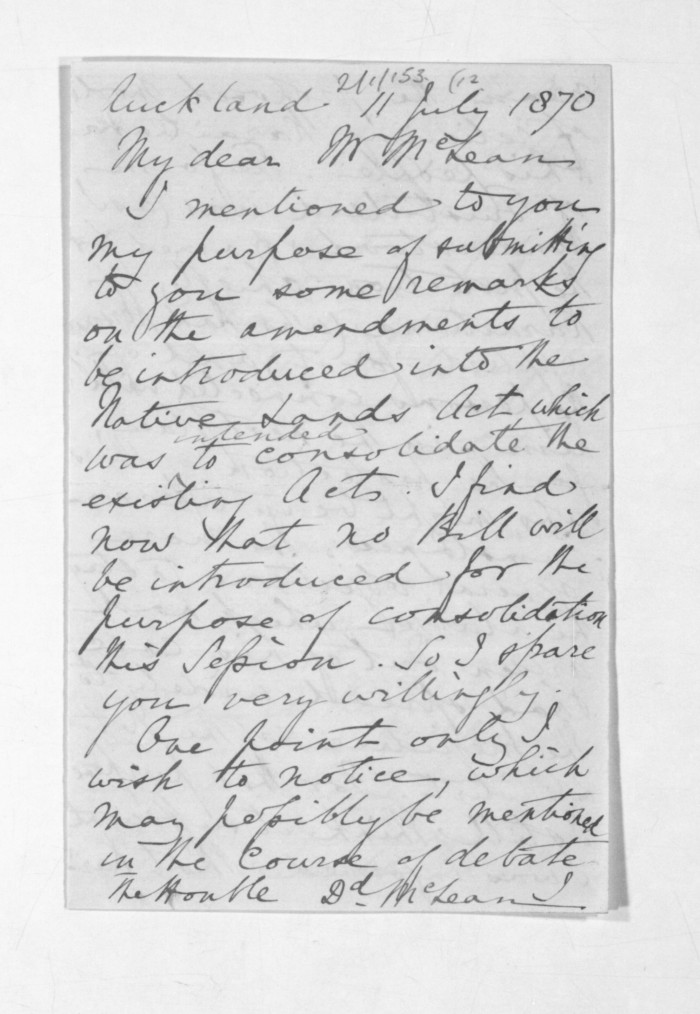 2/1/153. (12
Auckland 11 July 1870
My dear Mr McLean
I mentioned to you
my purpose of submitting
to you some remarks
on the amendments to
be introduced into the
Native Lands Act which
intended
was to consolidate the
existing Acts. I find
now that no Bill will
be introduced for the
purpose of consolidation
this Session. So I spare
you very willingly.
One point only I
wish to notice, which
may possibly be mentioned
in the course of debate
The Honble Dd. McLean